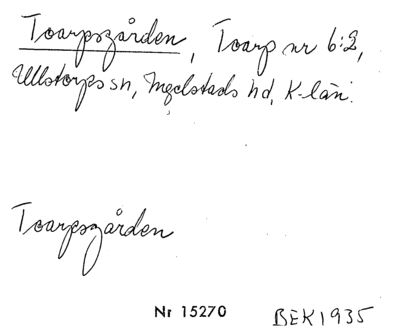 Toarpsgården, Toarp nr 6:2,
Ullstorps sn, Ingelstads hd, K-län.
Toarpsgården
Nr 15270 BEK 1935